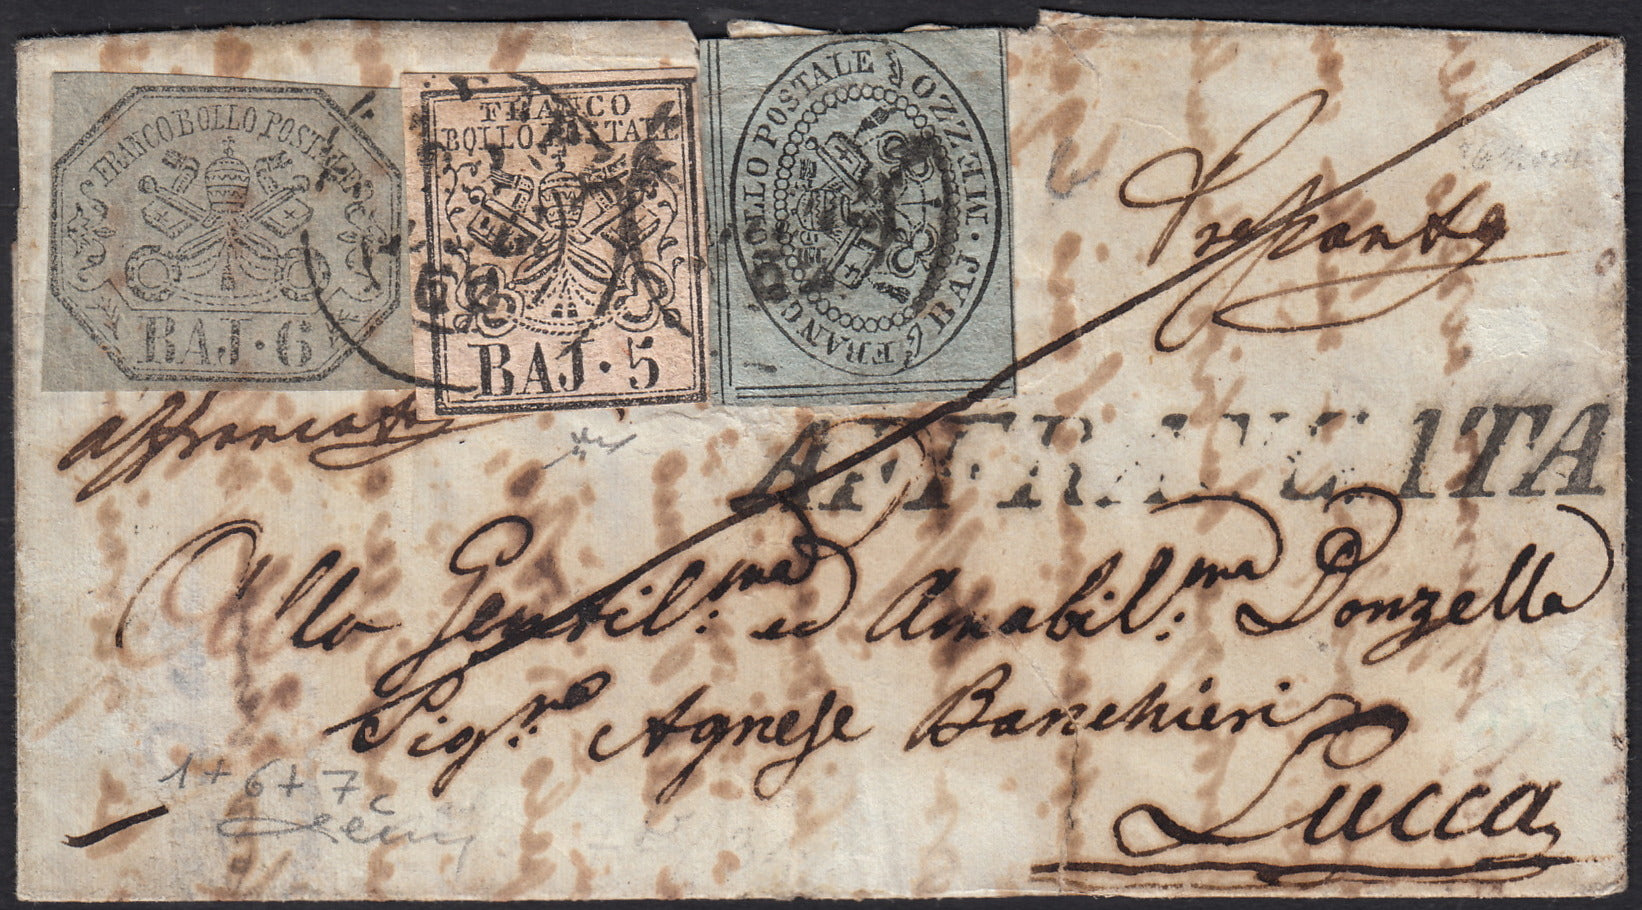 FRANCO BOLLO POSTALE
BAJ · 6
FRANCO
BOLLO POSTALE
BAJ · 5
FRANCO BOLLO POSTALE
MEZZO · BAJ ·
Pressante
affrancata
AFFRANCATA
Alla Gentil.ma ed Amabil.ma Donzella
Sig.re Agnese Banchieri
Lucca
1+6+7c